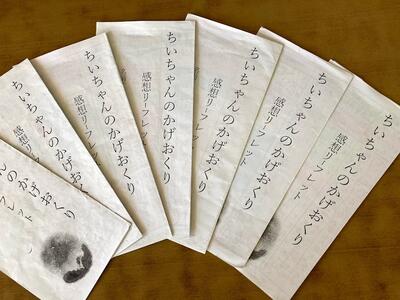 ちいちゃんのかげおくり
感想リーフレット
ちいちゃんのかげおくり
感想リーフレット
ちいちゃんのかげおくり
感想リーフレット
ちいちゃんのかげおくり
感想リーフレット
ちいちゃんのかげおくり
感想
ちいちゃんのかげおくり
感想リーフ
のかげおくり
フレット